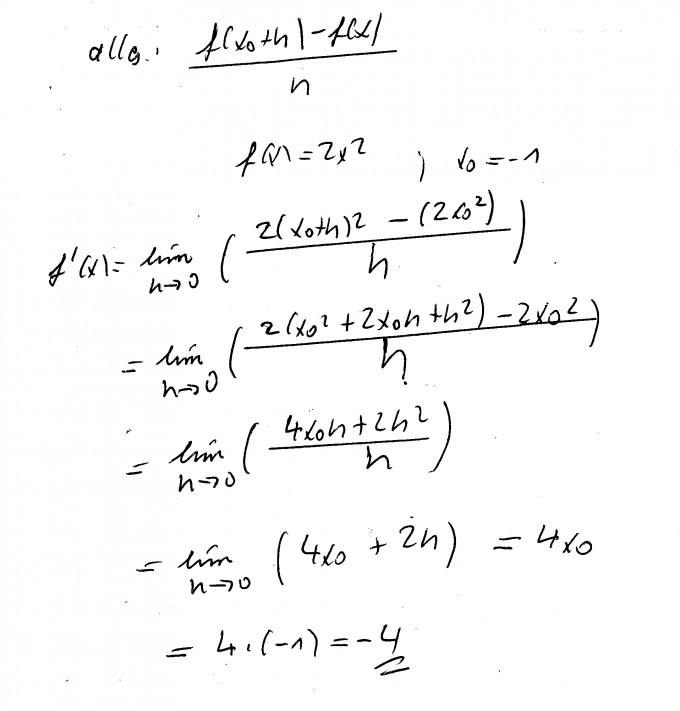 allg.: \frac{f(x_0+h)-f(x)}{h}
f(x)=2x^2 ; x_0=-1
f'(x)= \lim_{h→0} ( \frac{2(x_0+h)^2 - (2x_0^2)}{h} )
= \lim_{h→0} ( \frac{2(x_0^2+2x_0h+h^2)-2x_0^2}{h} )
= \lim_{h→0} ( \frac{4x_0h+2h^2}{h} )
= \lim_{h→0} ( 4x_0 + 2h ) = 4x_0
= 4·(-1) = -4